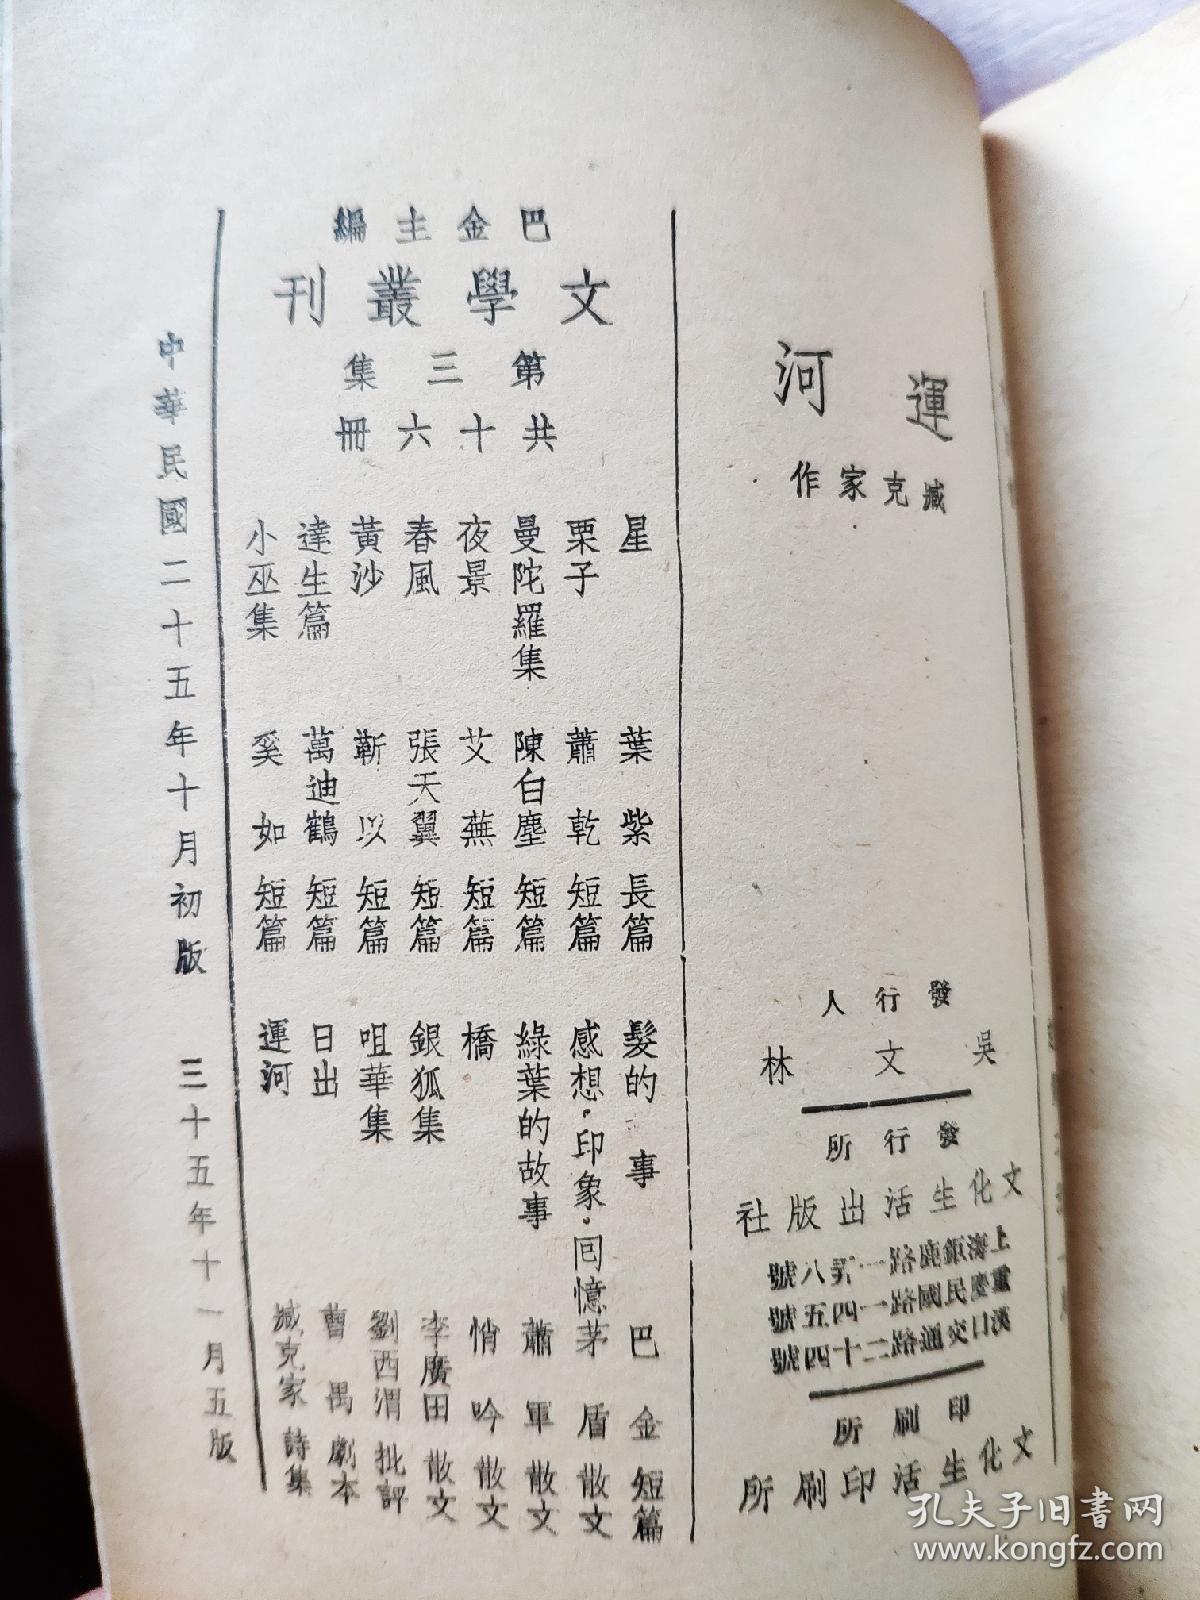 運河
臧克家作
發行人
吳文林
發行所
文化生活出版社
重慶民國路一四五號
漢口交通路二十四號
印刷所
文化生活印刷所
巴金主編
文學叢刊
第三集
共十六冊
星 葉紫 長篇
栗子 蕭乾 短篇
曼陀羅集 陳白塵 短篇
夜景 艾蕪 短篇
春風 張天翼 短篇
黃沙 靳以 短篇
達生篇 萬迪鶴 短篇
小巫集 奚如 短篇
髮的事 巴金 短篇
感想·印象·回憶 茅盾 散文
綠葉的故事 蕭軍 散文
橋 悄吟 散文
銀狐集 李廣田 散文
咀華集 劉西渭 批評
日出 曹禺 劇本
運河 臧克家 詩集
中華民國二十五年十月初版 三十五年十一月五版
孔夫子旧書网
www.kongfz.com